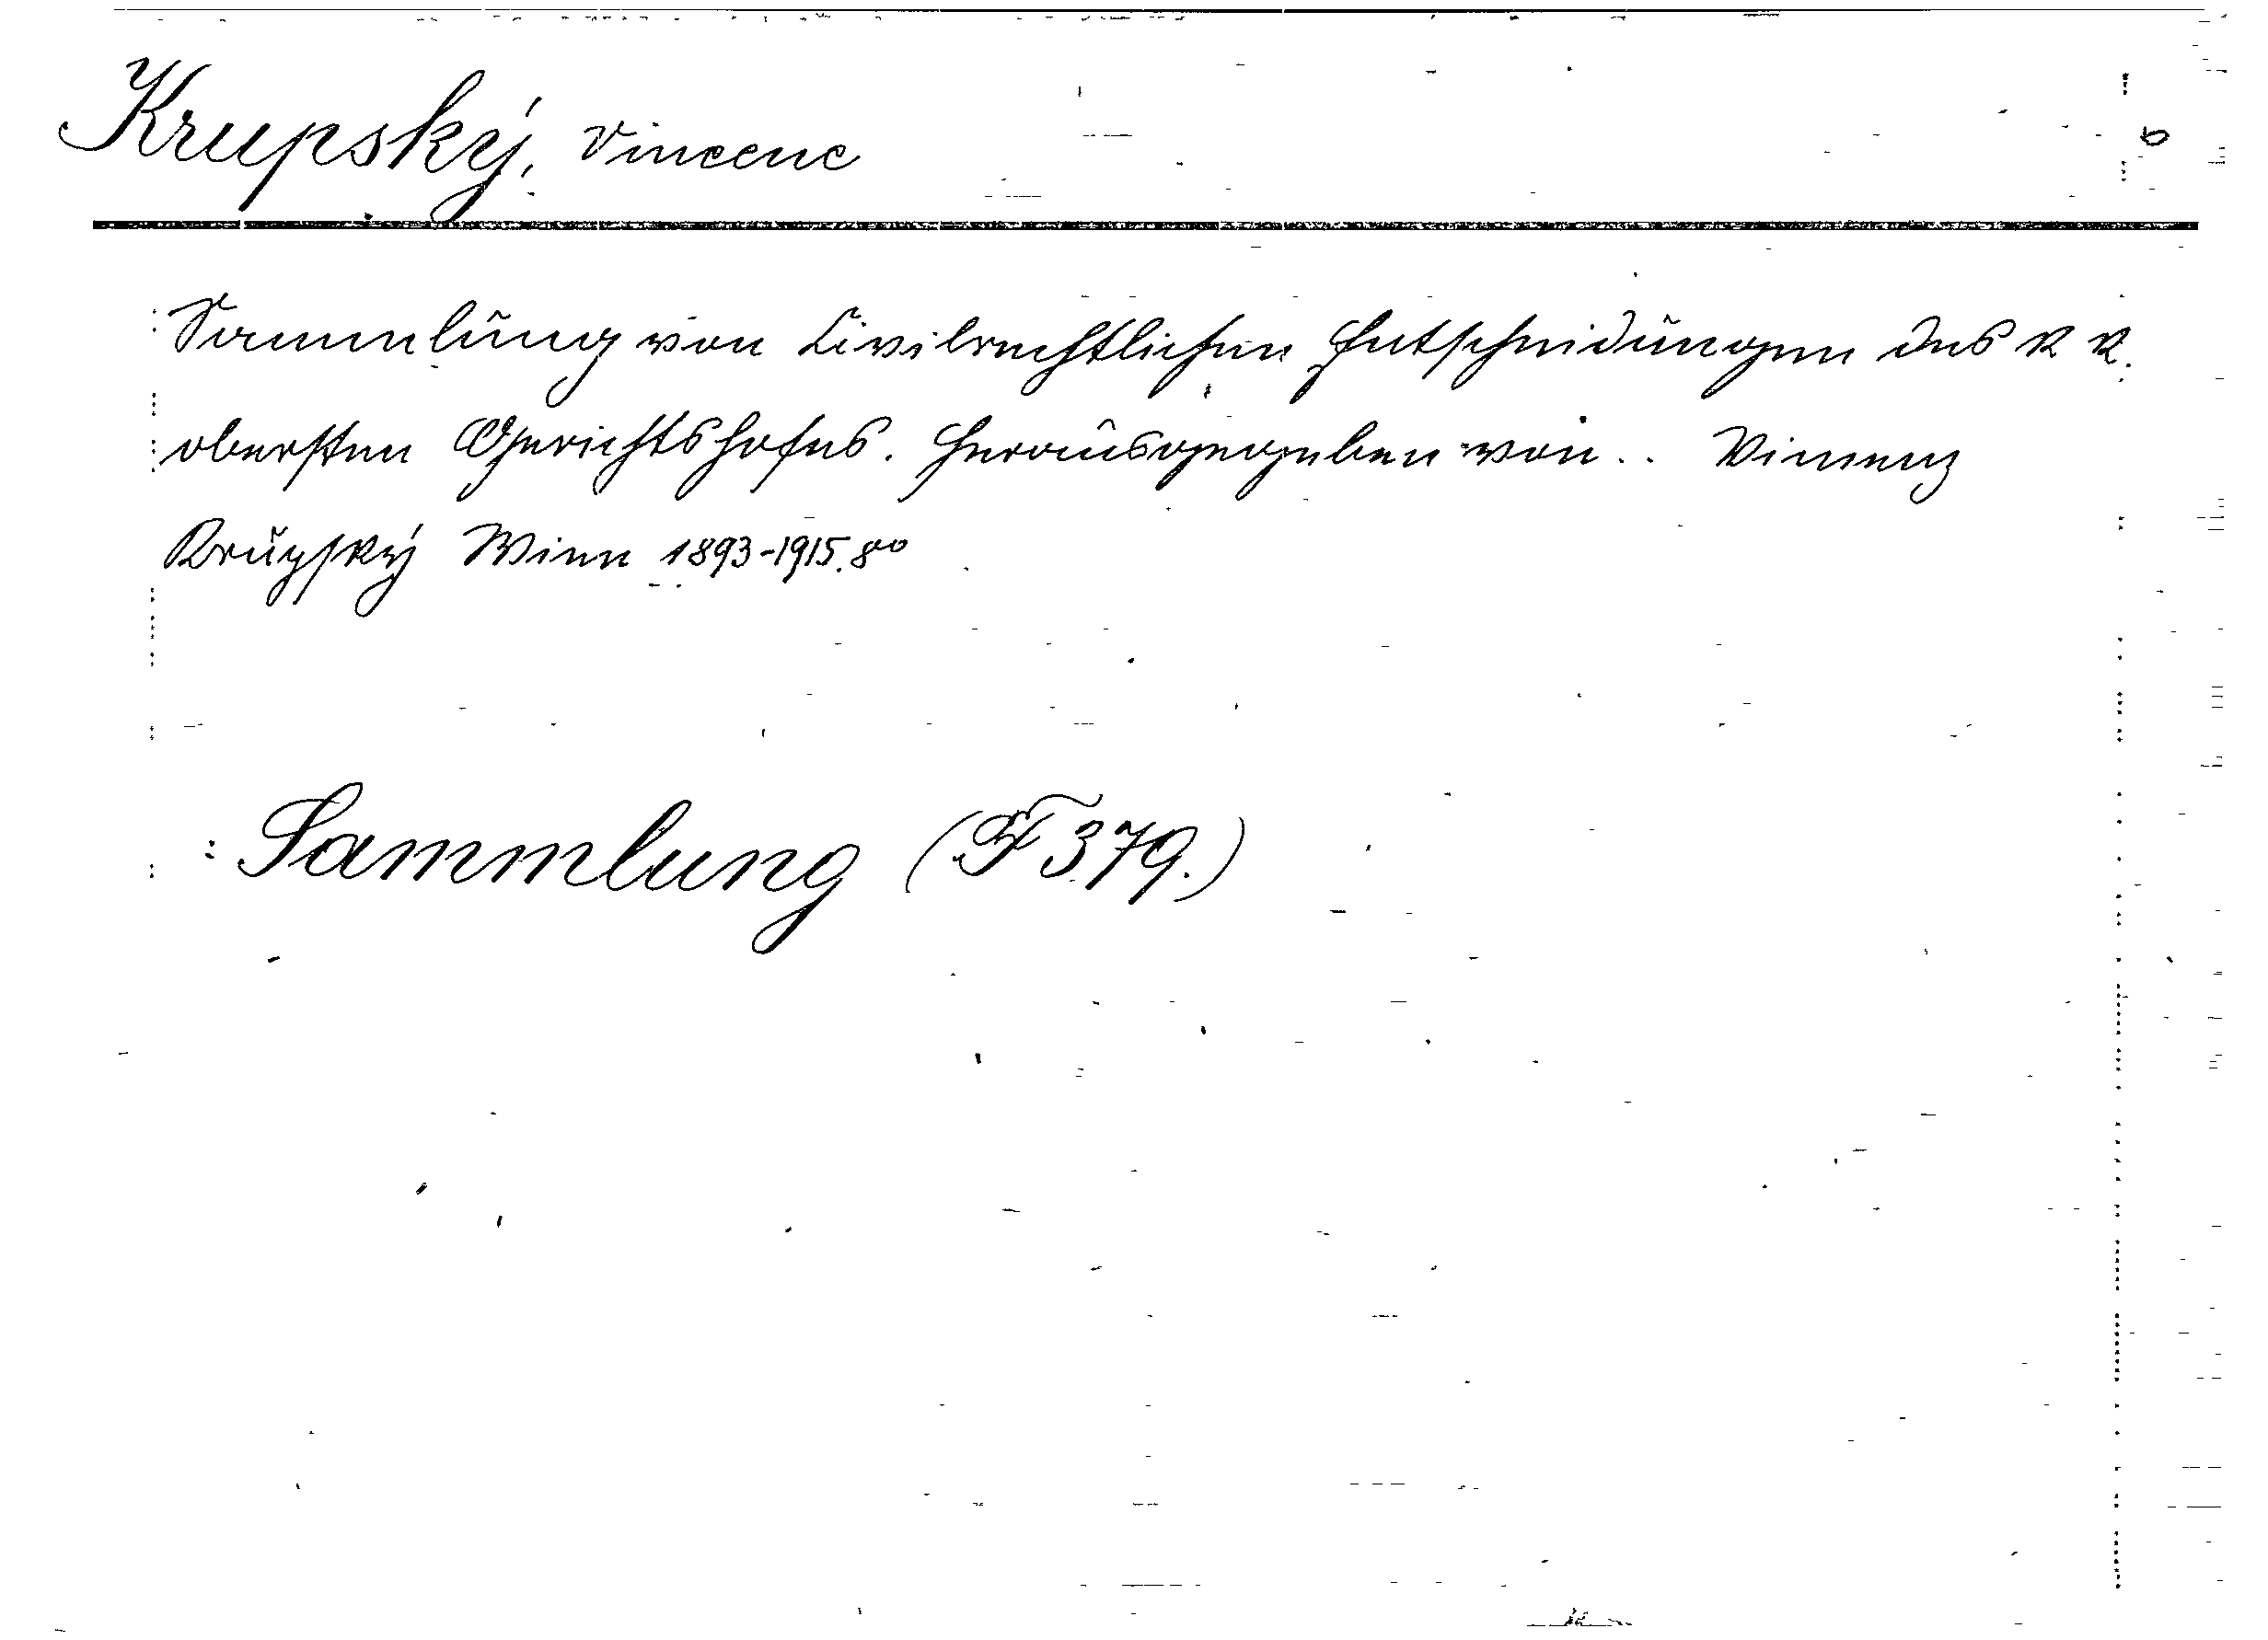 Krupský, Vincenc
Sammlung von Civilrechtlichen Entscheidungen des k k.
obersten Gerichtshofes. Herausgegeben von .. Vincenz
Krupský Wien 1893-1915. 8°
: Sammlung (F 379.)